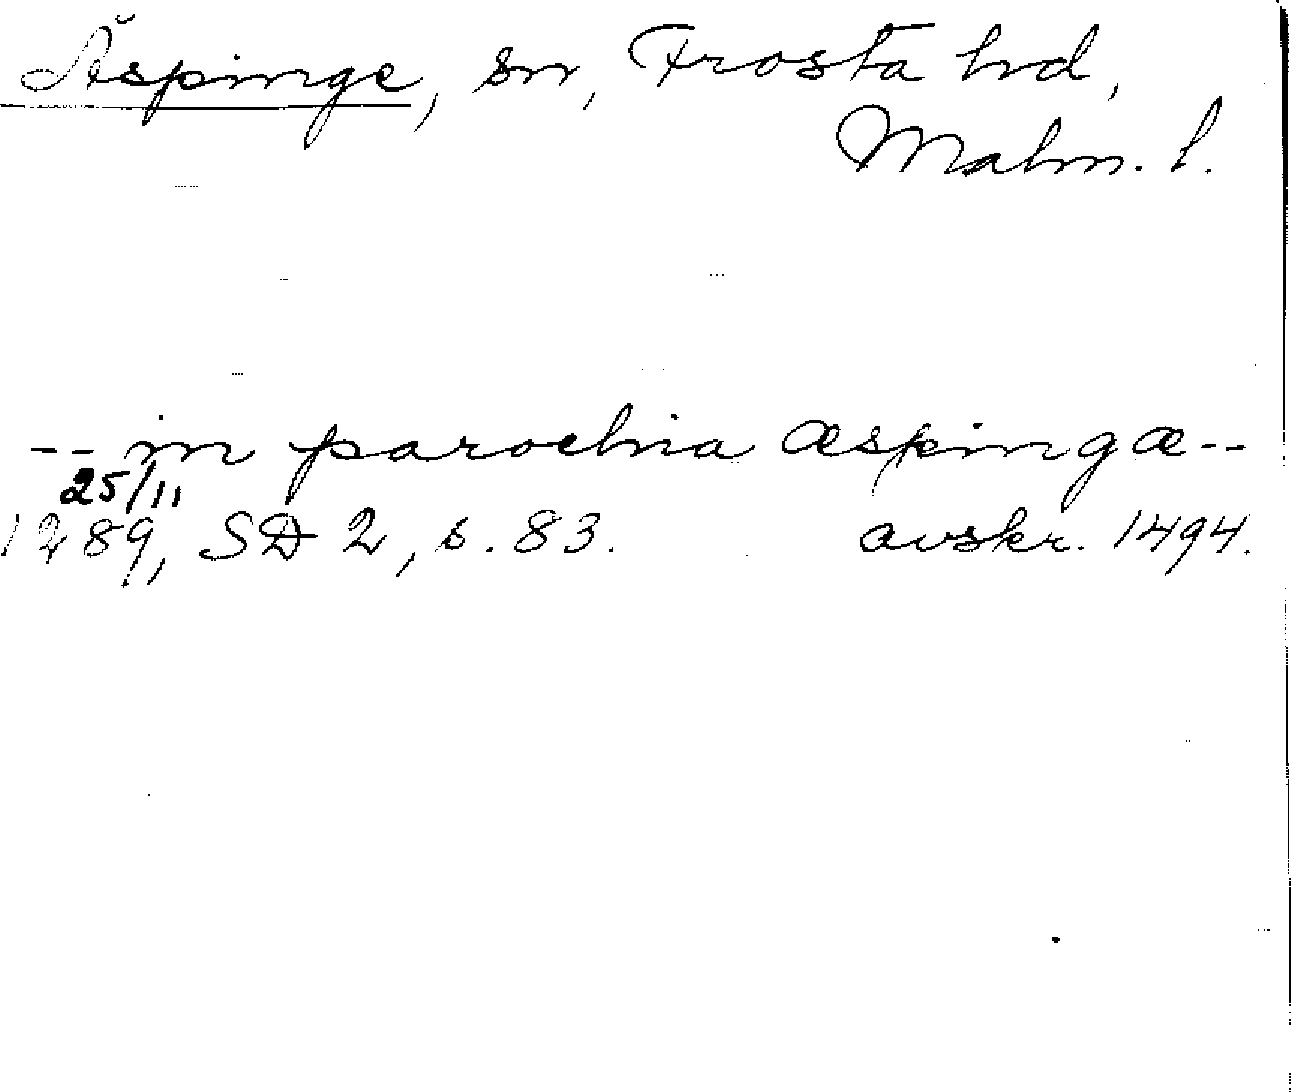 Äspinge, sn, Frosta hd,
Malm. l.
-- in parochia æspingæ --
25/11
1289, SD 2, s. 83. avskr. 1494.